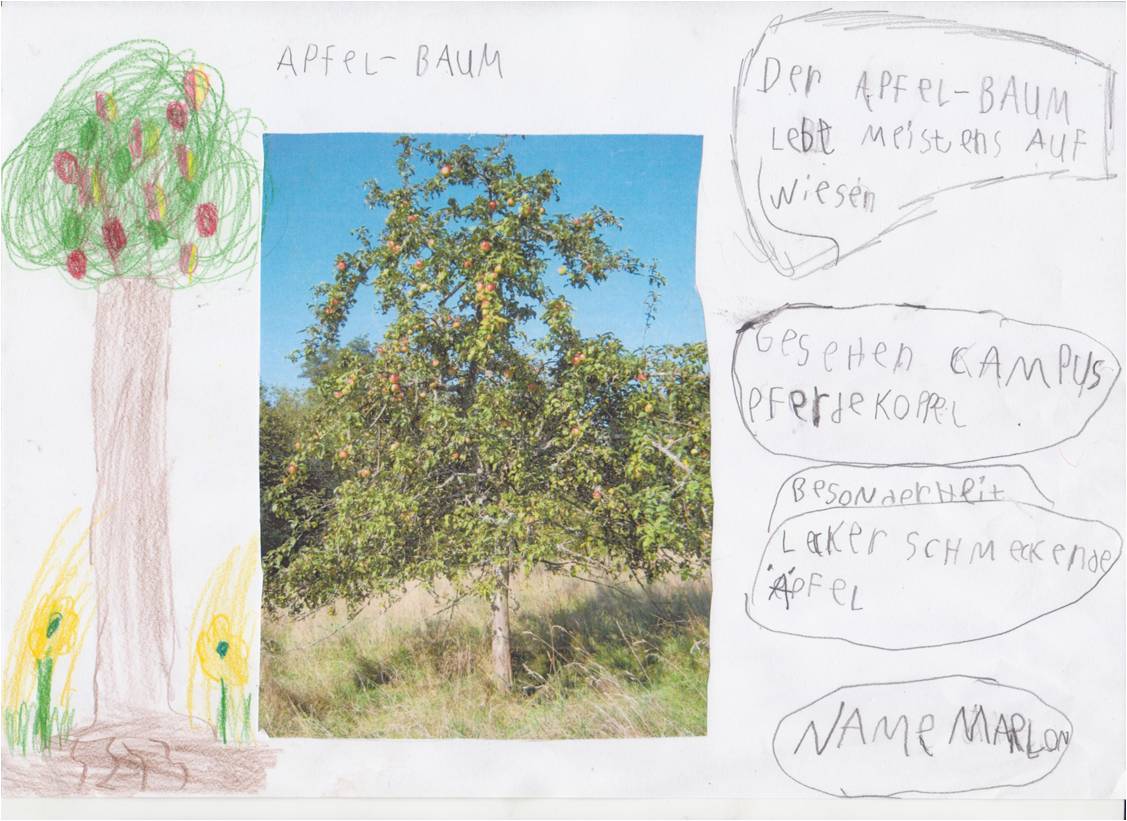 APFeL-BAUM
Der APFeL-BAUM
Lebt Meistens AUF
Wiesen
GeseHen CAMPUS
PFerdeKOPPeL
BesonderHeit
Lecker SCHMeckende
ÄPFeL
NAMe MARLON